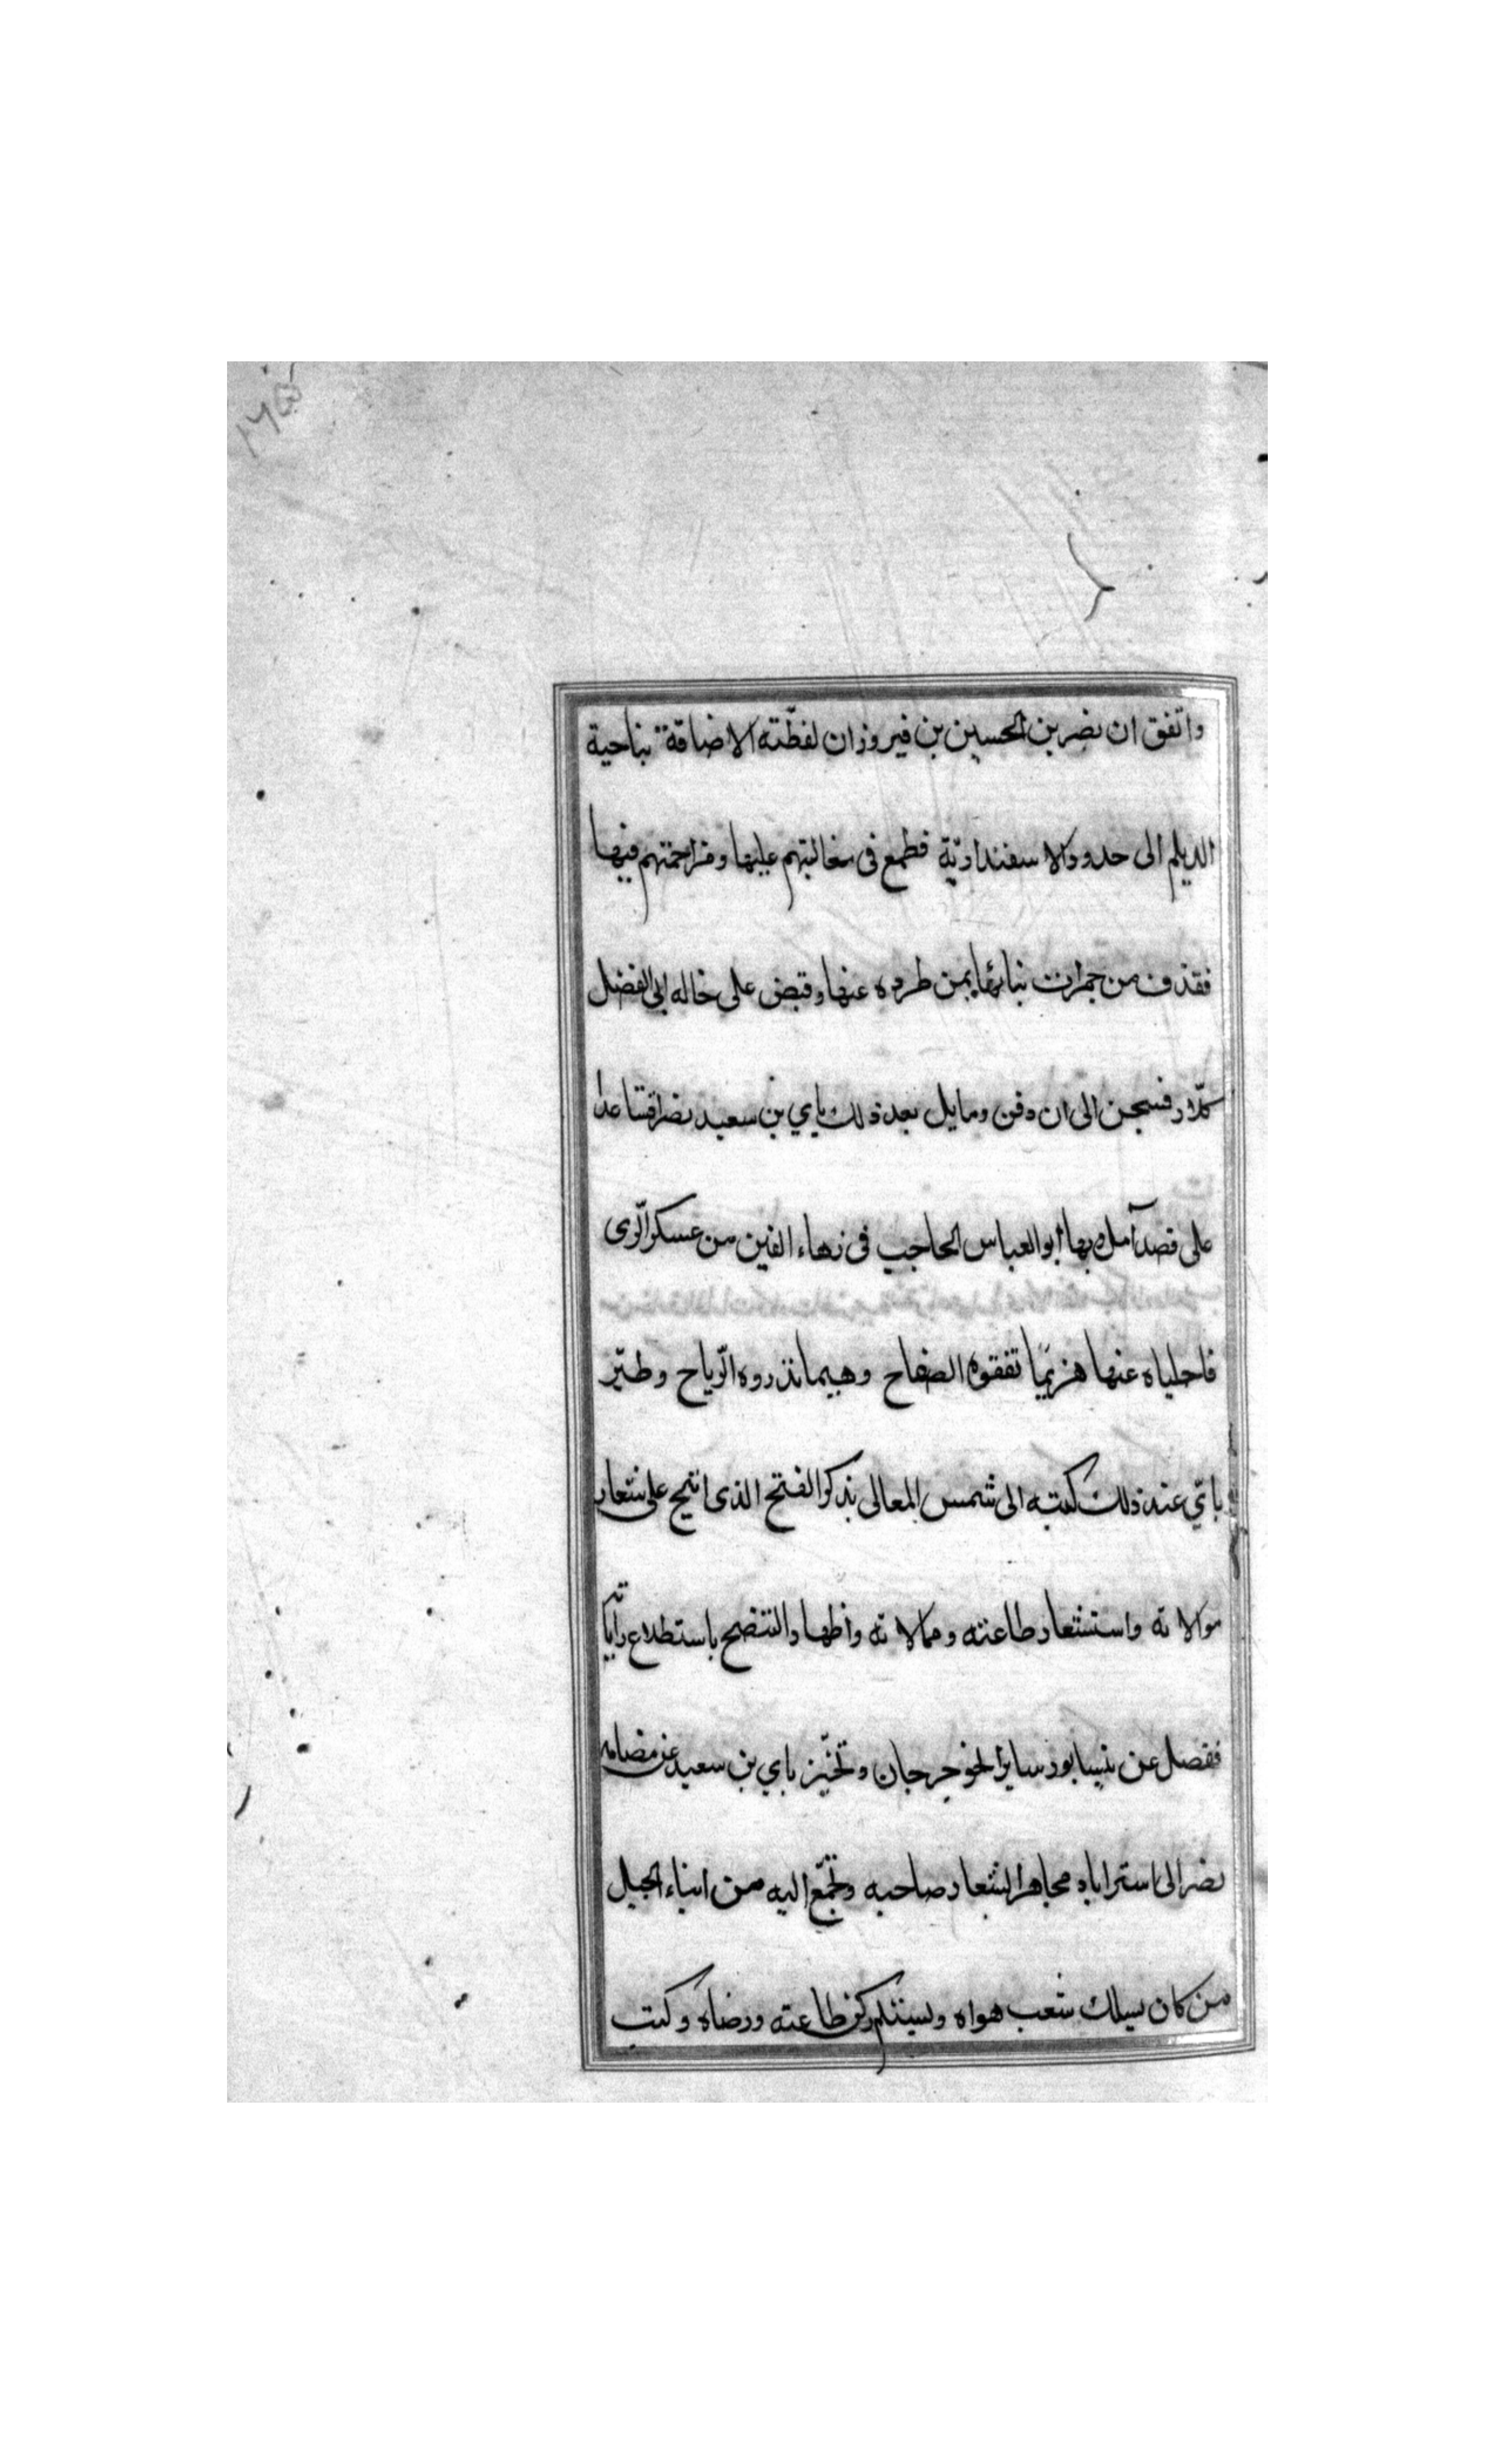 واتفق ان نصر بن الحسين بن فيروزان لفظته الاضاقة بناحية
الديلم الى حدود الاسفنداديّة فطمع فى مغالبتهم عليها ومزاحمتهم فيها
فقذف من جمرات بنائها بمن طرده عنها وقبض على خاله ابى الفضل
فسجن الى ان دفن ومايل بعد ذلك باي بن سعيد نصرا فتساعدا
على قصد آمل وبها ابو العباس الحاجب فى زهاء الفين من عسكر الرّى
فاجلياه عنها هزيمًا تفقوه الصفاح وهيما تذروه الرّياح وطيّر
باتي عند ذلك كتبه الى شمس المعالى بذكر الفتح الذى اتيح على شعار
موالاته واستشعار طاعته وممالاته واظهار التنصح باستطلاع راياته
ففصل عن نيسابور سايرا نحو جرجان وتحيّز باي بن سعيد عن مضامه
نصر الى استراباد مجاهرا بشعار صاحبه وتجمّع اليه من ابناء الجيل
من كان يسلك شعب هواه ويستلم ركن طاعته ورضاه وكتب